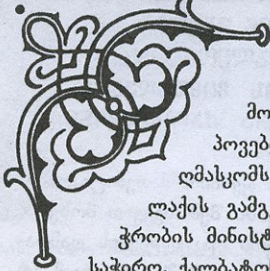 მო
პოვებ
ღმასკომს
ლაქის გამგ
ჭრობის მინისტ
საჭირო ქალბატო